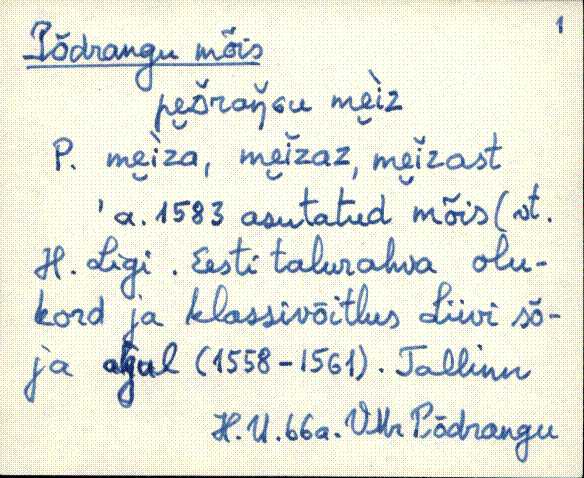 1
Põdrangu mõis
pe̮ŏ̀raŋ̆ɢu me̮ìz
P. me̮ìza, me̮ĭzaz, me̮ĭzast
'a. 1583 asutatud mõis (vt.
H. Ligi. Eesti talurahva olu-
kord ja klassivõitlus Liivi sõ-
ja algul (1558-1561). Tallinn
H.U. 66a. VMr Põdrangu